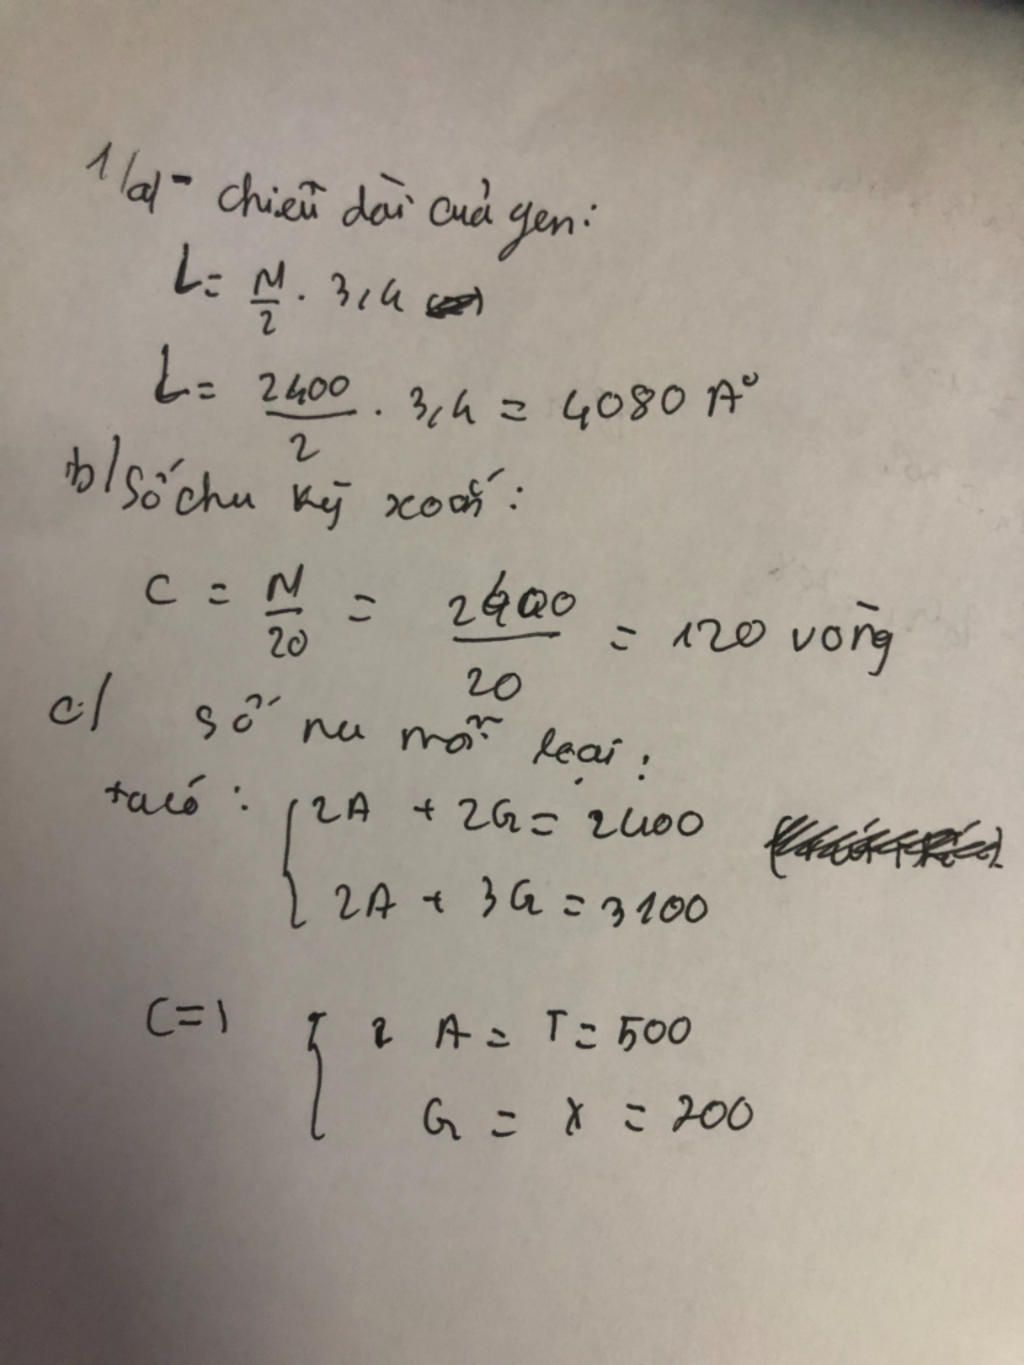 1/a/- chiều dài của gen:
L = N/2 . 3,4
L = 2400/2 . 3,4 = 4080 A°
b/ Số chu kỳ xoắn:
C = N/20 = 2400/20 = 120 vòng
c/ số nu mỗi loại:
ta có: { 2A + 2G = 2400
2A + 3G = 3100
(=) { A = T = 500
G = X = 200